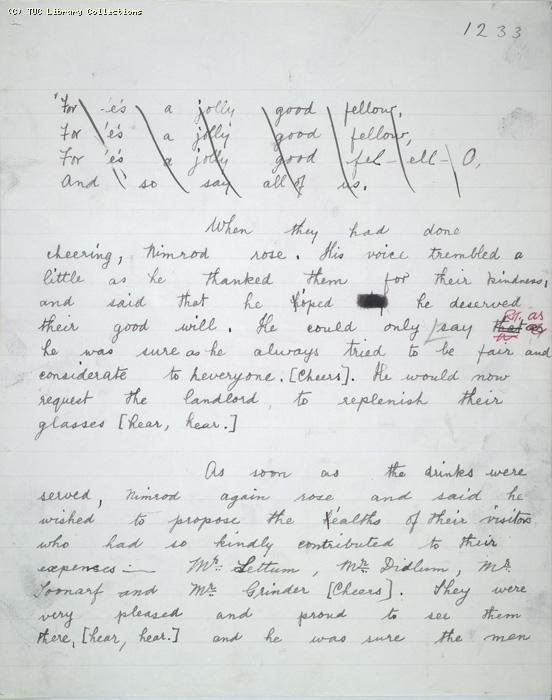 (C) TUC Library Collections
1233
'For 'e's a jolly good fellow,
For 'e's a jolly good fellow,
For 'e's a jolly good fel-ell-O,
And so say all of us.
When they had done
cheering, Nimrod rose. His voice trembled a
little as he thanked them for their kindness,
and said that he hoped he deserved
their good will. He could only say that as
he was sure as he always tried to be fair and
considerate to heveryone. [Cheers]. He would now
request the landlord to replenish their
glasses [Hear, hear.]
As soon as the drinks were
served, Nimrod again rose and said he
wished to propose the healths of their visitors
who had so kindly contributed to their
expences:— Mr. Lettum, Mr. Didlum, Mr.
Toonarf and Mr. Grinder [Cheers]. They were
very pleased and proud to see them
there, [hear, hear.] and he was sure the men